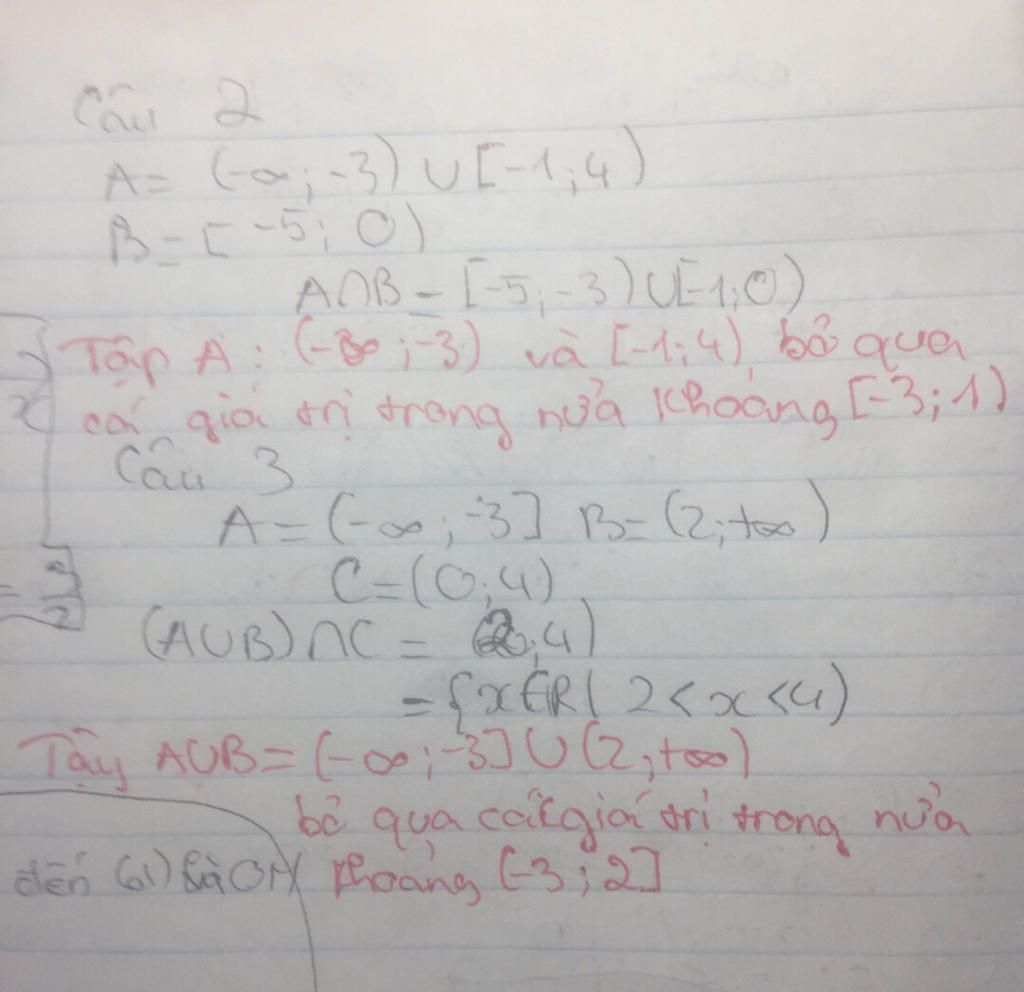 Câu 2
A = (-∞; -3) ∪ [-1; 4)
B = [-5; 0)
A∩B = [-5; -3) ∪ [-1; 0)
Tập A: (-∞; -3) và [-1; 4), bỏ qua
cá giá trị trong nửa khoảng [-3; 1)
Câu 3
A = (-∞; -3] B = (2; +∞)
C = (0; 4)
(A∪B)∩C = (2; 4)
= {x∈R | 2 < x < 4)
Tây A∪B = (-∞; -3] ∪ (2; +∞)
bỏ qua các giá trị trong nửa
khoảng (-3; 2]
đến (61)